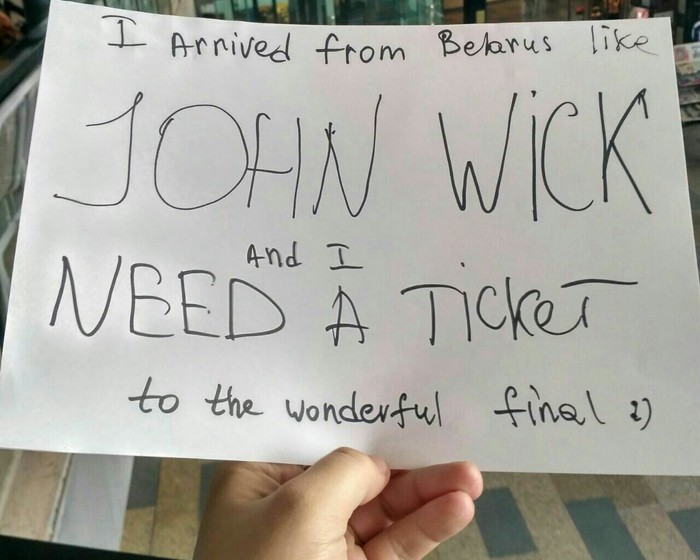 I Arrived from Belarus like
JOHN WiCK
And I
NEED A TickeT
to the wonderful final :)